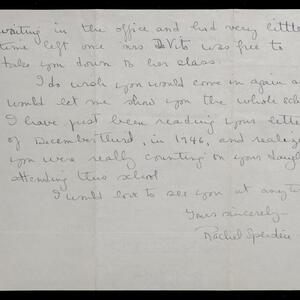 waiting in the office and had very little
time left once Mrs DeVito was free to
take you down to her class.
I do wish you would come in again and
would let me show you the whole sch
I have just been reading your lette
of December third, in 1946, and realize
you were really counting on your daugh
attending this school
I would love to see you at any ti
Yours sincerely—
Rachel